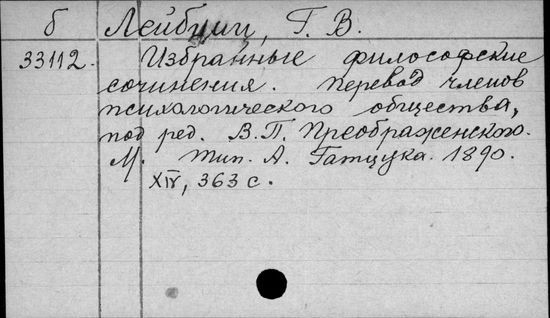 б Лейбниц, Г. В.
33112. Избранные философские
сочинения. Перевод членов
психологического общества,
под ред. В. П. Преображенского.
М. Тип. А. Гатцука. 1890.
XIV, 363 с.